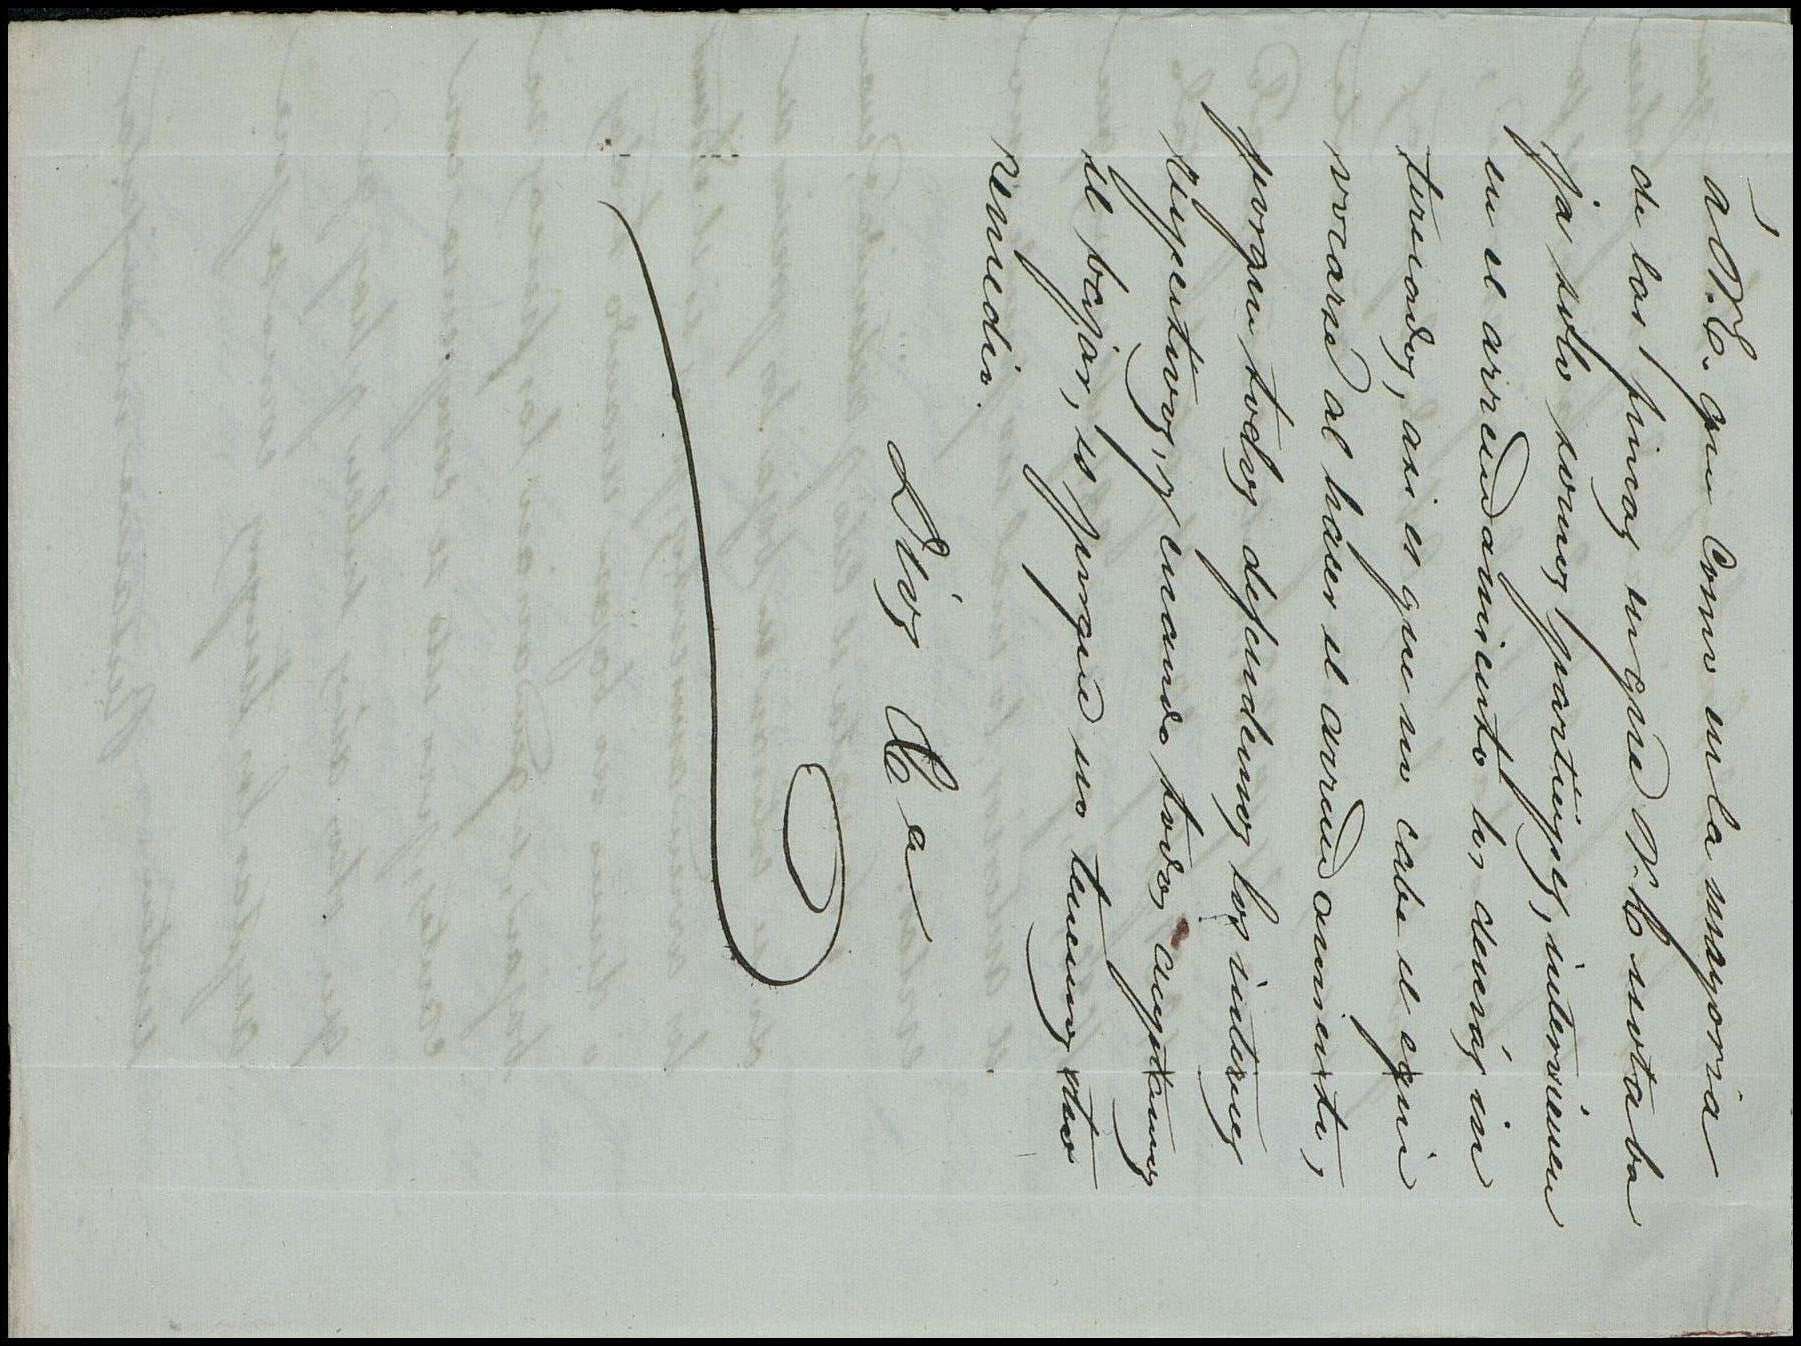 á V.E. que como en la mayoria
de las fincas en que V.E. notaba
ja solo somos participes, intervienen
en el arrendamiento los demás in
teresados, asi es que no cabe el equi
vocarse al hacer el arrendamiento,
porque todos defendemos los intereses
respectivos, y cuando todos aceptamos
el bajar, es porque no tenemos otro
remedio.
Dios &a